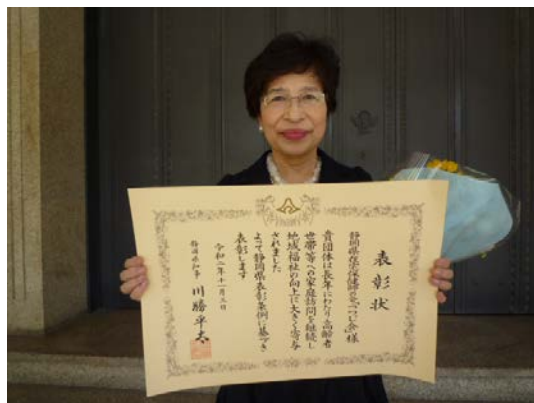 表彰状
静岡県在宅保健師の会つつじ会様
貴団体は長年にわたり高齢者
世帯等への家庭訪問を継続し
地域福祉の向上に大きく寄与
されました
よって静岡県表彰条例に基づき
表彰します
令和二年十一月三日
静岡県知事 川勝平太